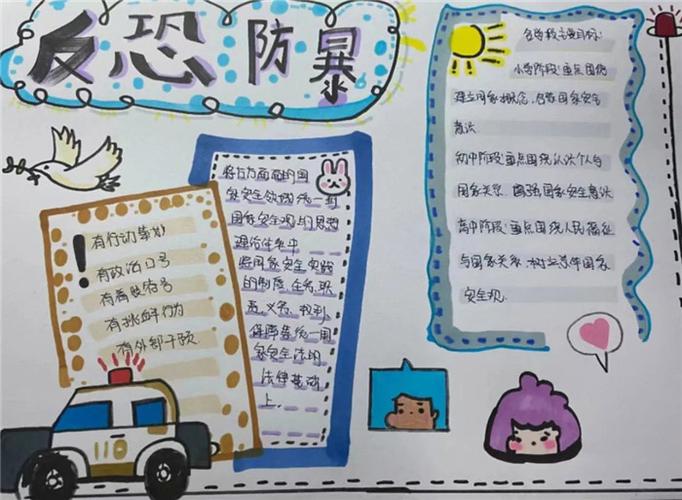 反恐防暴
有行动策划
有政治口号
有暴
有挑衅行为
有外部干预
将各方面面的国
家安全领域统一到
国家安全观的思想
通信体系中
将国家安全实践
的制度、任务、职
责、义务、权利
保障等统一用
家安全法的
法律基础
上.
各学段主要目标:
小学阶段:重点围绕
建立国家概念,启蒙国家安全
意识
初中阶段:重点围绕认识个人与
国家关系,增强国家安全意识
高中阶段:重点围绕人民福祉
与国家关系,树立总体国家
安全观.
110